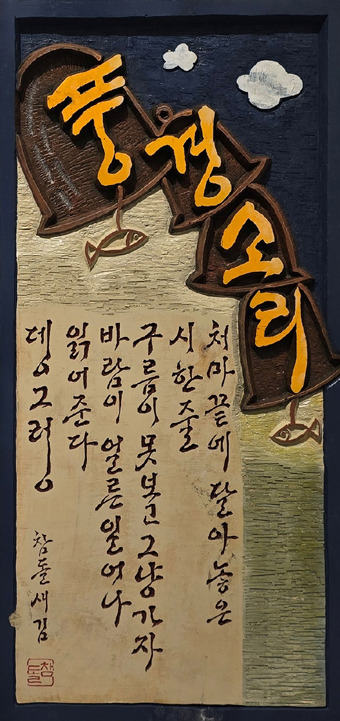 풍경소리
처마끝에 달아놓은
시 한 줄
구름이 못보고 그냥가자
바람이 얼른 일어나
읽어준다
뎅그렁
참돌새김
참돌